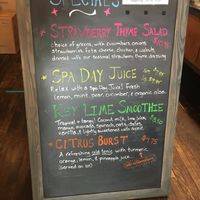 SPECIALS
STRAWBERRY THYME SALAD
choice of greens, with cucumbers, onions,
strawberries, feta cheese,
dressed with our seasonal strawberry thyme dressing
SPA DAY JUICE
Relax with a Spa Day Juice! Fresh
lemon, mint, pear, cucumber, & organic aloe.
KEY LIME SMOOTHIE
Tropical + tangy! Coconut milk, key lime,
mango, avocado, spinach, dates,
vanilla, & lightly sweetened with agave.
CITRUS BURST $7.75
A refreshing cold tonic with turmeric,
orange, lemon, & pineapple juice...
(served on ice)